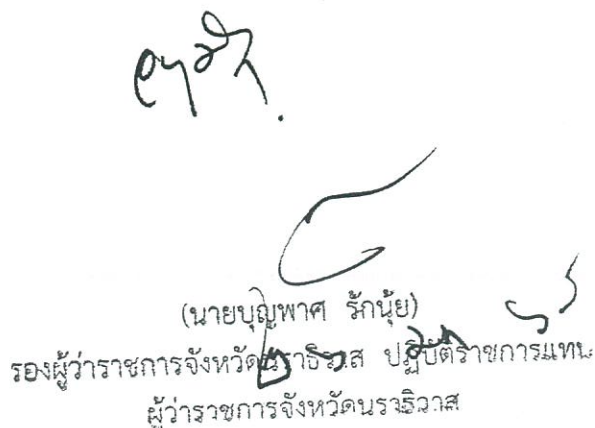 อนุมัติ
(นายบุญพาศ รักนุ้ย)
รองผู้ว่าราชการจังหวัดนราธิวาส ปฏิบัติราชการแทน
ผู้ว่าราชการจังหวัดนราธิวาส